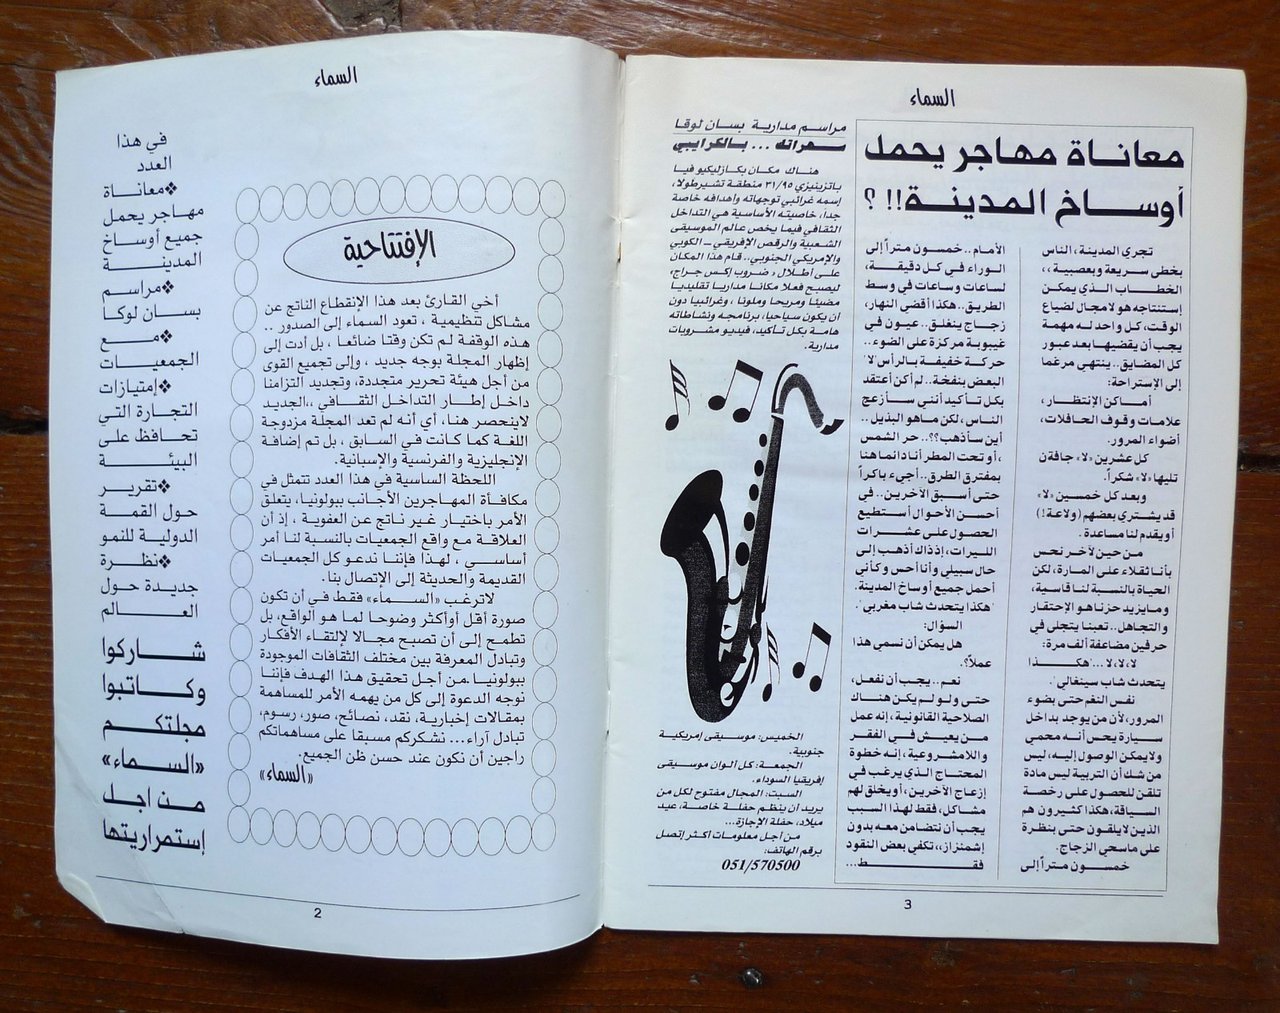 السماء
في هذا
العدد
❖معانـــاة
مهاجر يحمل
جميع أوساخ
المدينـــــــة
❖مراســـم
بســـان لوكا
❖مـــــــع
الجمعيـــات
❖إمتيازات
التجارة التي
تحافظ على
البيئــــــة
❖تقريـــر
حول القمة
الدولية للنمو
❖نظـــرة
جديدة حول
العـــالم
شــاركوا
وكـاتبوا
مجلتكــم
«السماء»
مـن اجـل
إستمراريتها
الإفتتاحية
أخي القارئ بعد هذا الإنقطاع الناتج عن
مشاكل تنظيمية ، تعود السماء إلى الصدور ..
هذه الوقفة لم تكن وقتا ضائعا ، بل أدت إلى
إظهار المجلة بوجه جديد ، وإلى تجميع القوى
من أجل هيئة تحرير متجددة، وتجديد التزامنا
داخل إطار التداخل الثقافي ،،الجديد
لاينحصر هنا، أي أنه لم تعد المجلة مزدوجة
اللغة كما كانت في السابق ، بل تم إضافة
الإنجليزية والفرنسية والإسبانية.
اللحظة الساسية في هذا العدد تتمثل في
مكافأة المهاجرين الأجانب ببولونيا، يتعلق
الأمر باختيار غير ناتج عن العفوية ، إذ أن
العلاقة مع واقع الجمعيات بالنسبة لنا أمر
أساسي ، لهذا فإننا ندعو كل الجمعيات
القديمة والحديثة إلى الإتصال بنا.
لاترغب «الســـماء» فقط في أن تكون
صورة أقل أوأكثر وضوحا لما هو الواقع، بل
تطمح إلى أن تصبح مجالا لإلتقاء الأفكار
وتبادل المعرفة بين مختلف الثقافات الموجودة
ببولونيا .من أجل تحقيق هذا الهدف فإننا
نوجه الدعوة إلى كل من يهمه الأمر للمساهمة
بمقالات إخبارية، نقد، نصائح، صور، رسوم،
تبادل آراء... نشكركم مسبقا على مساهماتكم
راجين أن نكون عند حسن ظن الجميع.
«السماء»
2
السماء
معانـاة مهـاجر يحمـل
أوســاخ المدينــة!! ؟
تجري المدينة ، الناس
بخطى سريعة وبعصبية ،،
الخطاب الذي يمكن
إستنتاجه هو لامجال لضياع
الوقت، كل واحد له مهمة
يجب أن يقضيها بعد عبور
كل المضايق.. ينتهي مرغما
إلى الإستراحة:
أماكن الإنتظار ،
علامات وقوف الحافلات،
أضواء المرور.
كل عشرين «لا» جافة ن
تليها «لا» شكراً.
وبعد كل خمسين «لا»
قد يشتري بعضهم (ولاعة!)
أو يقدم لنا مساعدة.
من حين لآخر نحس
بأنا ثقلاء على المارة، لكن
الحياة بالنسبة لنا قاسية،
وما يزيد حزنا هو الإحتقار
والتجاهل.. تعبنا يتجلى في
حرفين مضاعفة ألف مرة:
لا، لا، لا ...'هكـــــذا
يتحدث شاب سينغالي '.
نفس النغم حتى بضوء
المرور، لأن من يوجد بداخل
سيارة يحس أنه محمي
ولا يمكن الوصول إليه، ليس
من شك أن التربية ليس مادة
تلقن للحصول على رخصة
السياقة، هكذا كثيرون هم
الذين لا يلقون حتى بنظرة
على ماسحي الزجاج.
خمســون متــراً إلى
الأمام .. خمسون متراً إلى
الوراء في كل دقيقة،
لساعات وساعات في وسط
الطريق.. هكذا أقضي النهار،
زجاج ينغلق.. عيون في
غيبوبة مركزة على الضوء..
حركة خفيفة بالرأس لا'
البعض بنفخة.. لم أكن أعتقد
بكل تـأكيد أنني سـأزعج
الناس، لكن ماهو البذيل ..
أين سأذهب؟؟.. حر الشمس
، أو تحت المطر أنا دائما هنا
بمفترق الطرق.. أجيء باكراً
حتى أسبق الآخرين.. في
أحسن الأحوال أستطيع
الحصول على عشــرات
الليرات، إذذاك أذهب إلى
حال سبيلي وأنا أحس وكأني
أحمل جميع أوساخ المدينة.
'هكذا يتحدث شاب مغربي '.
السؤال:
هل يمكن أن نسمي هذا
عملاً؟.
نعم.. يجب أن نفعل،
حتى ولو لم يكن هناك
الصلاحية القانونية، إنه عمل
من يعيش في الفقر
واللامشروعية ، إنه خطوة
المحتاج الذي يرغب في
إزعاج الآخرين، أو يخلق لهم
مشاكل، فقط لهذا السبب
يجب أن نتضامن معه بدون
إشمئزاز،، تكفي بعض النقود
فقـــــط...
مراسم مدارية بسـان لوقا
سهراتك ... بـالكرايبي
هنـاك مكـان بكـازليكيو فيـا
باتزينيزي ٣١/٩٥ منطقة تشيرطولا،
إسمه غرائبي توجهاته وأهدافه خاصة
جداً، خاصيته الأساسية هي التداخل
الثقافي فيما يخص عالم الموسيقى
الشعبية والرقص الإفريقي ـ الكوبي
والإمريكي الجنوبي.. قام هذا المكان
على أطلال ، ضروب إكس جراج،
ليصبح فعلا مكانا مداريا تقليديا
مضيئا ومريحا وملونا ، وغرائبيا دون
أن يكون سياحيا، برنامجه ونشاطاته
هامة بكل تأكيد، فيديو مشروبات
مدارية.
الخميس: موسـيقى إمريكية
جنوبية.
الجمعة: كل ألوان موسـيقى
إفريقيا السوداء.
السبت: المجال مفتوح لكل من
يريد أن ينظم حفلة خاصة، عيد
ميلاد، حفلة الإجازة...
من أجل معلومات أكثر إتصل
برقم الهاتف:
051/570500
3